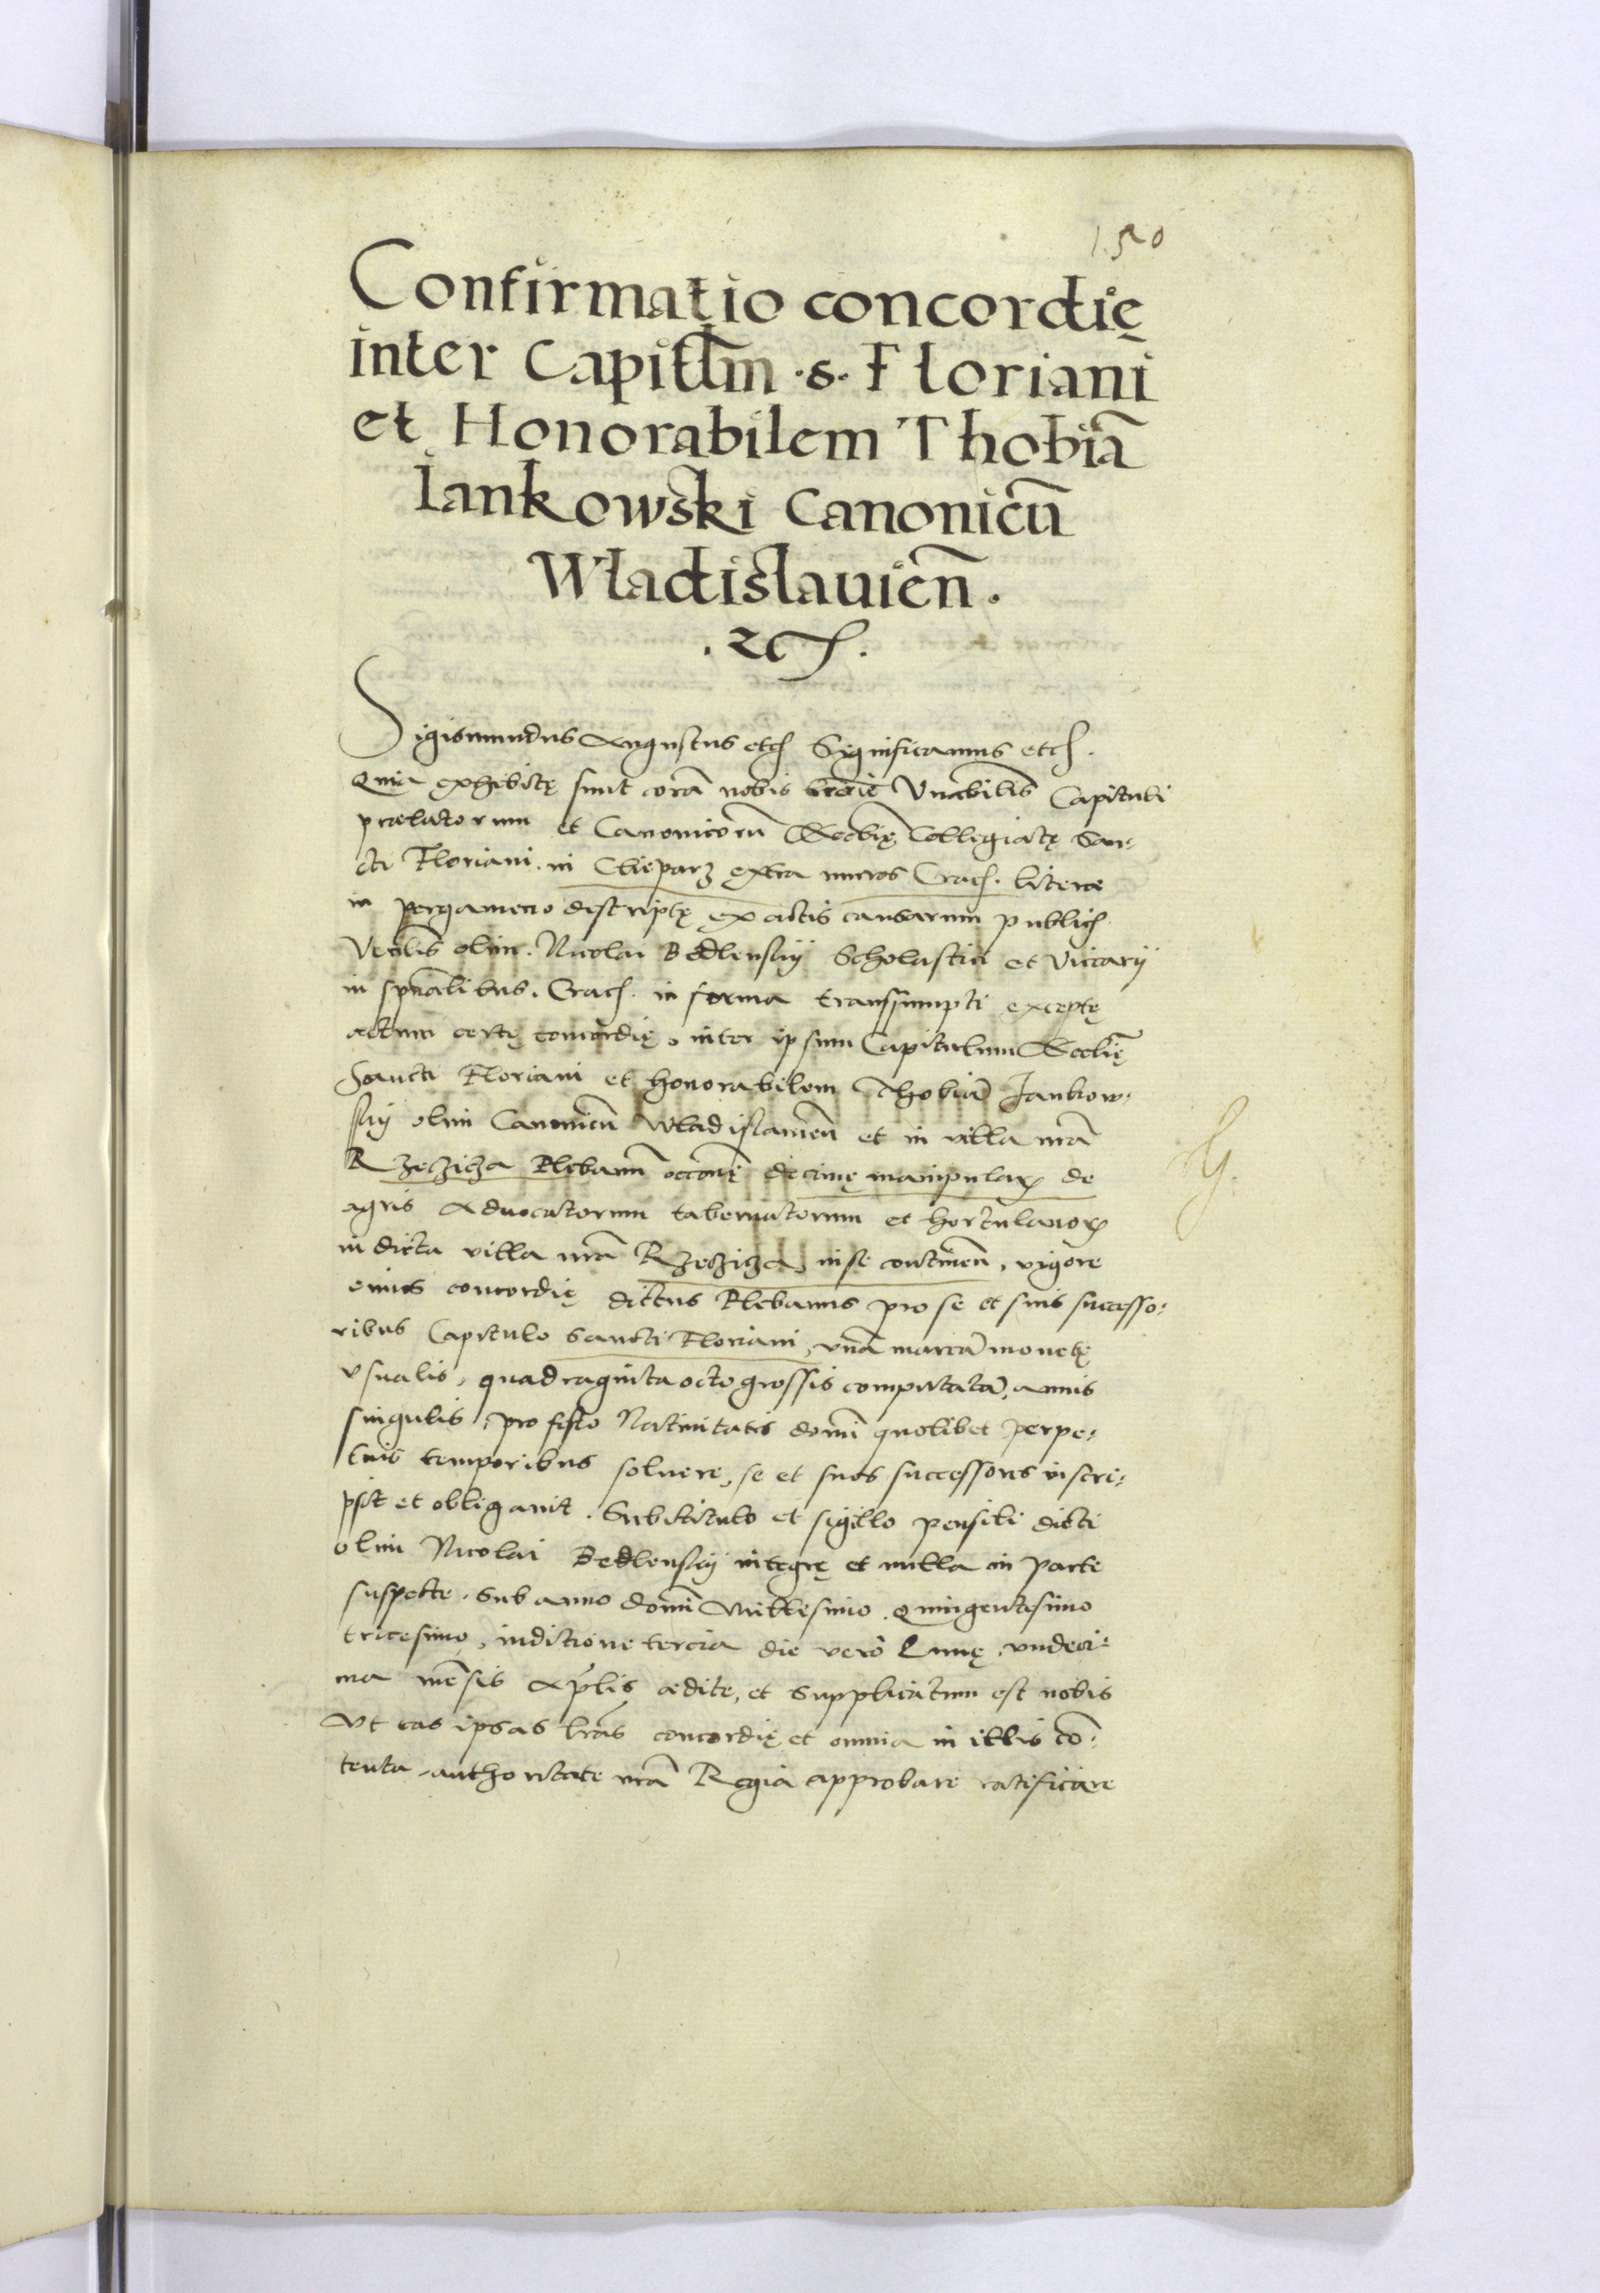 1520
Confirmatio concordię
inter Capitlm .s. Floriani
et Honorabilem Thobiã
Iankowski Canonicũ
Wladislauieñ.
.etc.
Sigismundus Augustus etc Significamus etc.
Quia exhibitę sunt corã nobis Vnabilis Capituli
prælatorum et Canonicorũ Ecclię Collegiatę San-
cti Floriani in Clieparz extra muros Crac. literæ
in pergameno descriptę ex actis causarum public
Venlis olim Nicolai Bedlenskij Scholastici et Vicarij
in spũalibus Crac. in forma transsumpti exceptę
actum certę concordię, inter ipsum Capitulum Ecclię
Sancti Floriani et honorabilem Thobiã Jankow-
skij olim Canonicũ Wladislauieñ et in villa nrã
Rzeczicza Plebanũ occõnę decimę manipular de
agris Aduocatorum tabernatorum et hortulanor
in dicta villa nrã Rzeczicza in se contineñ, vigore
cuius concordię dictus Plebanus pro se et suis successo-
ribus Capitulo Sancti Floriani, vnã marcã monetę
vsualis, quadraginta octo grossis computatã, annis
singulis, pro festo Natiuitatis domĩ quolibet perpe-
tuis temporibus soluere, se et suos successores inscri-
psit et obligauit. Sub titulo et sigillo pensili dicti
olim Nicolai Bedlenskij integrę et nulla in parte
suspecte. Sub anno domĩ Millesimo Quingentesimo
tricesimo, inditione tercia die vero Lunę, vndeci-
ma mẽsis Aprlis ædite, et supplicatum est nobis
Vt eas ipsas lrãs concordię et omnia in illis cõ-
tenta authoritate nrã Regia approbare ratificare